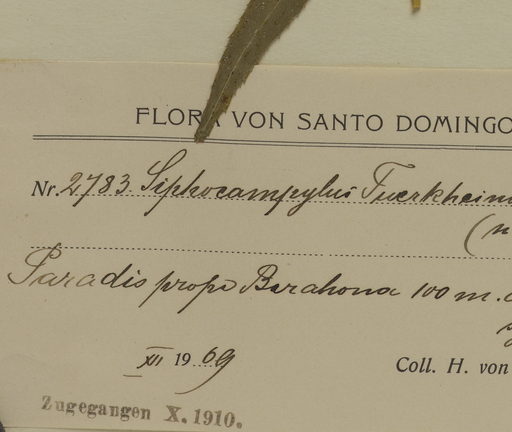 FLORA VON SANTO DOMINGO
Nr. 2783 Siphocampylus Tuerkheim
(n
Paradis prope Barahona 100 m.
XII 1909
Coll. H. von
Zugegangen X. 1910.